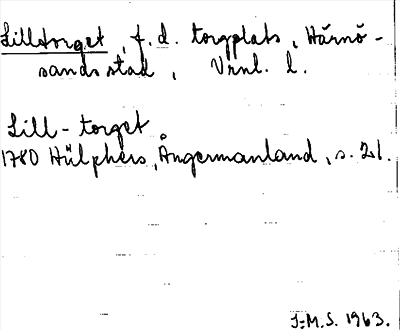 Lilltorget, f.d. torgplats, Härnö-
sands stad, Vrnl. l.
Lill-torget
1780 Hülphers, Ångermanland, s. 21.
I.M.S. 1963.